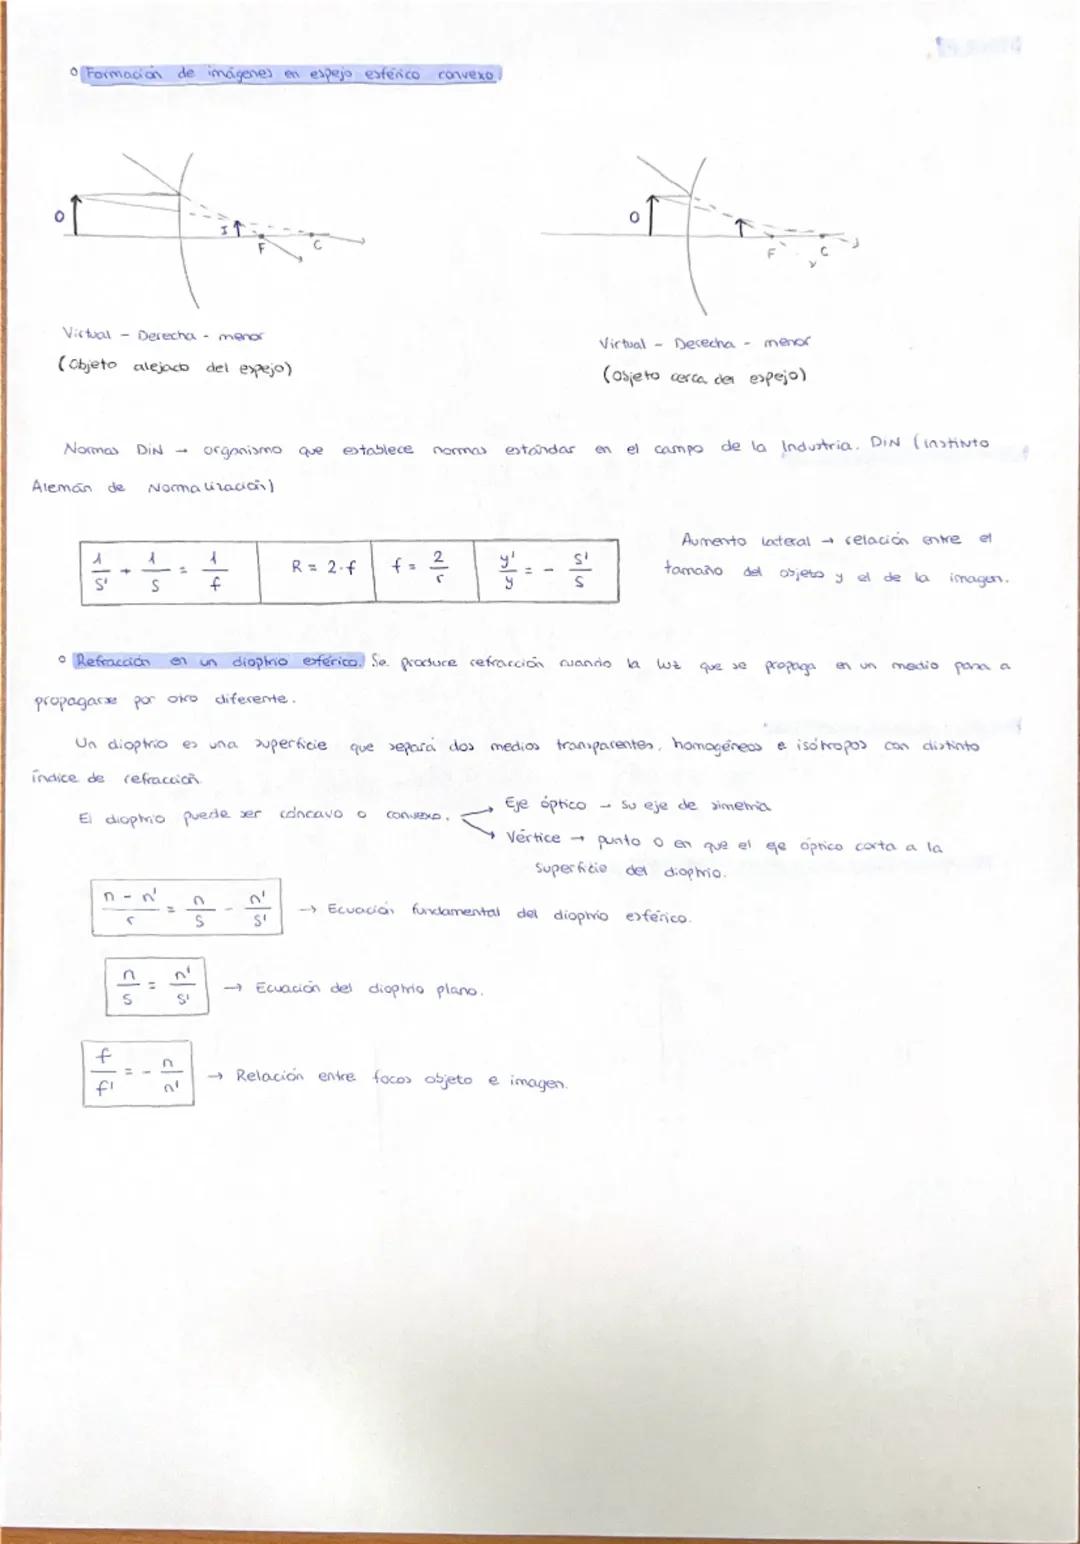 ° Formación de imágenes en espejo esférico convexo
O I F C
O F C
Virtual - Derecha - menor
(Objeto alejado del espejo)
Virtual - Derecha - menor
(Objeto cerca del espejo)
Normas DIN → organismo que establece normas estándar en el campo de la Industria. DIN (Instituto
Alemán de Normalización)
1/s' + 1/s = 1/f
R = 2·f
f = 2/r
y'/y = - s'/s
Aumento lateral → relación entre el
tamaño del objeto y el de la imagen.
° Refracción en un dioptrio esférico. Se produce refracción cuando la luz que se propaga en un medio pasa a
propagarse por otro diferente.
Un dioptrio es una superficie que separa dos medios transparentes, homogéneos e isótropos con distinto
índice de refracción
El dioptrio puede ser cóncavo o convexo.
Eje óptico → su eje de simetría
Vértice → punto O en que el eje óptico corta a la
superficie del dioptrio.
n - n'/r = n/s - n'/s' → Ecuación fundamental del dioptrio esférico.
n/s = n'/s' → Ecuación del dioptrio plano.
f/f' = - n/n' → Relación entre focos objeto e imagen.